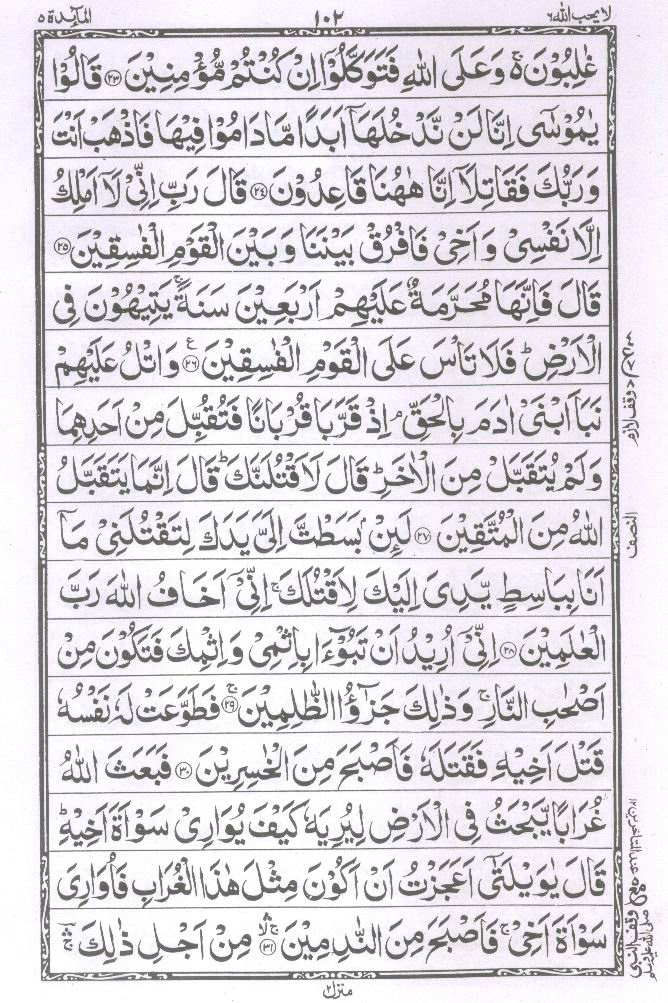 لا يحب الله ٦
١٠٢
المآئدة ٥
غٰلِبُوْنَ ۚ٥ وَعَلَى اللهِ فَتَوَكَّلُوْۤا اِنْ كُنْتُمْ مُّؤْمِنِيْنَ ﴿٢٣﴾ قَالُوْا
يٰمُوْسٰۤى اِنَّا لَنْ نَّدْخُلَهَاۤ اَبَدًا مَّا دَامُوْا فِيْهَا فَاذْهَبْ اَنْتَ
وَرَبُّكَ فَقَاتِلَاۤ اِنَّا هٰهُنَا قَاعِدُوْنَ ﴿٢٤﴾ قَالَ رَبِّ اِنِّيْ لَاۤ اَمْلِكُ
اِلَّا نَفْسِيْ وَاَخِيْ فَافْرُقْ بَيْنَنَا وَبَيْنَ الْقَوْمِ الْفٰسِقِيْنَ ﴿٢٥﴾
قَالَ فَاِنَّهَا مُحَرَّمَةٌ عَلَيْهِمْ اَرْبَعِيْنَ سَنَةً ۚ يَتِيْهُوْنَ فِي
الْاَرْضِ ؕ فَلَا تَاْسَ عَلَى الْقَوْمِ الْفٰسِقِيْنَ ﴿٢٦﴾ ع وَاتْلُ عَلَيْهِمْ
نَبَاَ ابْنَيْ اٰدَمَ بِالْحَقِّ ۘ اِذْ قَرَّبَا قُرْبَانًا فَتُقُبِّلَ مِنْ اَحَدِهِمَا
وَلَمْ يُتَقَبَّلْ مِنَ الْاٰخَرِ ؕ قَالَ لَاَقْتُلَنَّكَ ؕ قَالَ اِنَّمَا يَتَقَبَّلُ
اللهُ مِنَ الْمُتَّقِيْنَ ﴿٢٧﴾ لَئِنْۢ بَسَطْتَّ اِلَيَّ يَدَكَ لِتَقْتُلَنِيْ مَاۤ
اَنَا بِبَاسِطٍ يَّدِيَ اِلَيْكَ لِاَقْتُلَكَ ۚ اِنِّيْۤ اَخَافُ اللهَ رَبَّ
الْعٰلَمِيْنَ ﴿٢٨﴾ اِنِّيْۤ اُرِيْدُ اَنْ تَبُوْٓءَا بِاِثْمِيْ وَاِثْمِكَ فَتَكُوْنَ مِنْ
اَصْحٰبِ النَّارِ ۚ وَذٰلِكَ جَزٰٓؤُا الظّٰلِمِيْنَ ۚ﴿٢٩﴾ فَطَوَّعَتْ لَهٗ نَفْسُهٗ
قَتْلَ اَخِيْهِ فَقَتَلَهٗ فَاَصْبَحَ مِنَ الْخٰسِرِيْنَ ﴿٣٠﴾ فَبَعَثَ اللهُ
غُرَابًا يَّبْحَثُ فِي الْاَرْضِ لِيُرِيَهٗ كَيْفَ يُوَارِيْ سَوْاَةَ اَخِيْهِ ؕ
قَالَ يٰوَيْلَتٰۤى اَعَجَزْتُ اَنْ اَكُوْنَ مِثْلَ هٰذَا الْغُرَابِ فَاُوَارِيَ
سَوْاَةَ اَخِيْ ۚ فَاَصْبَحَ مِنَ النّٰدِمِيْنَ ﴿٣١﴾ مِنْ اَجْلِ ذٰلِكَ
وقف لازم
النصف
عند المتأخرين ١٢
وقف النبي
صلى الله عليه وسلم
منزل ٢